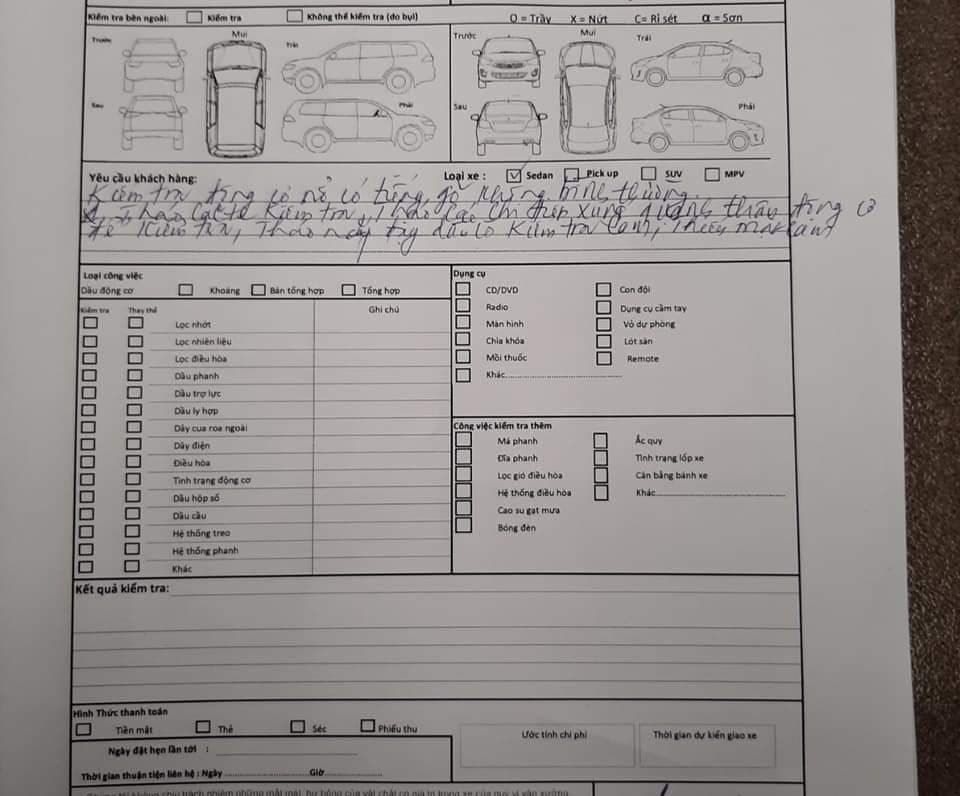 Kiểm tra bên ngoài: Kiểm tra Không thể kiểm tra (do bụi) O = Trầy X = Nứt C= Rỉ sét α = Sơn
Trước Mui Trái Trước Mui Trái
Sau Phải Sau Phải
Yêu cầu khách hàng: Loại xe : Sedan Pick up SUV MPV
Kiểm tra động cơ nổ có tiếng gõ, không bình thường
kiểm tra, xung quanh thân động cơ
để kiểm tra, kiểm tra cam,
Loại công việc
Dầu động cơ Khoáng Bán tổng hợp Tổng hợp
Kiểm tra Thay thế Ghi chú
Lọc nhớt
Lọc nhiên liệu
Lọc điều hòa
Dầu phanh
Dầu trợ lực
Dầu ly hợp
Dây cua roa ngoài
Dây điện
Điều hòa
Tình trạng động cơ
Dầu hộp số
Dầu cầu
Hệ thống treo
Hệ thống phanh
Khác
Dụng cụ
CD/DVD Con đội
Radio Dụng cụ cầm tay
Màn hình Vỏ dự phòng
Chìa khóa Lót sàn
Mồi thuốc Remote
Khác
Công việc kiểm tra thêm
Má phanh Ắc quy
Đĩa phanh Tình trạng lốp xe
Lọc gió điều hòa Cân bằng bánh xe
Hệ thống điều hòa Khác
Cao su gạt mưa
Bóng đèn
Kết quả kiểm tra:
Hình Thức thanh toán
Tiền mặt Thẻ Séc Phiếu thu
Ước tính chi phí Thời gian dự kiến giao xe
Ngày đặt hẹn lần tới :
Thời gian thuận tiện liên hệ : Ngày Giờ